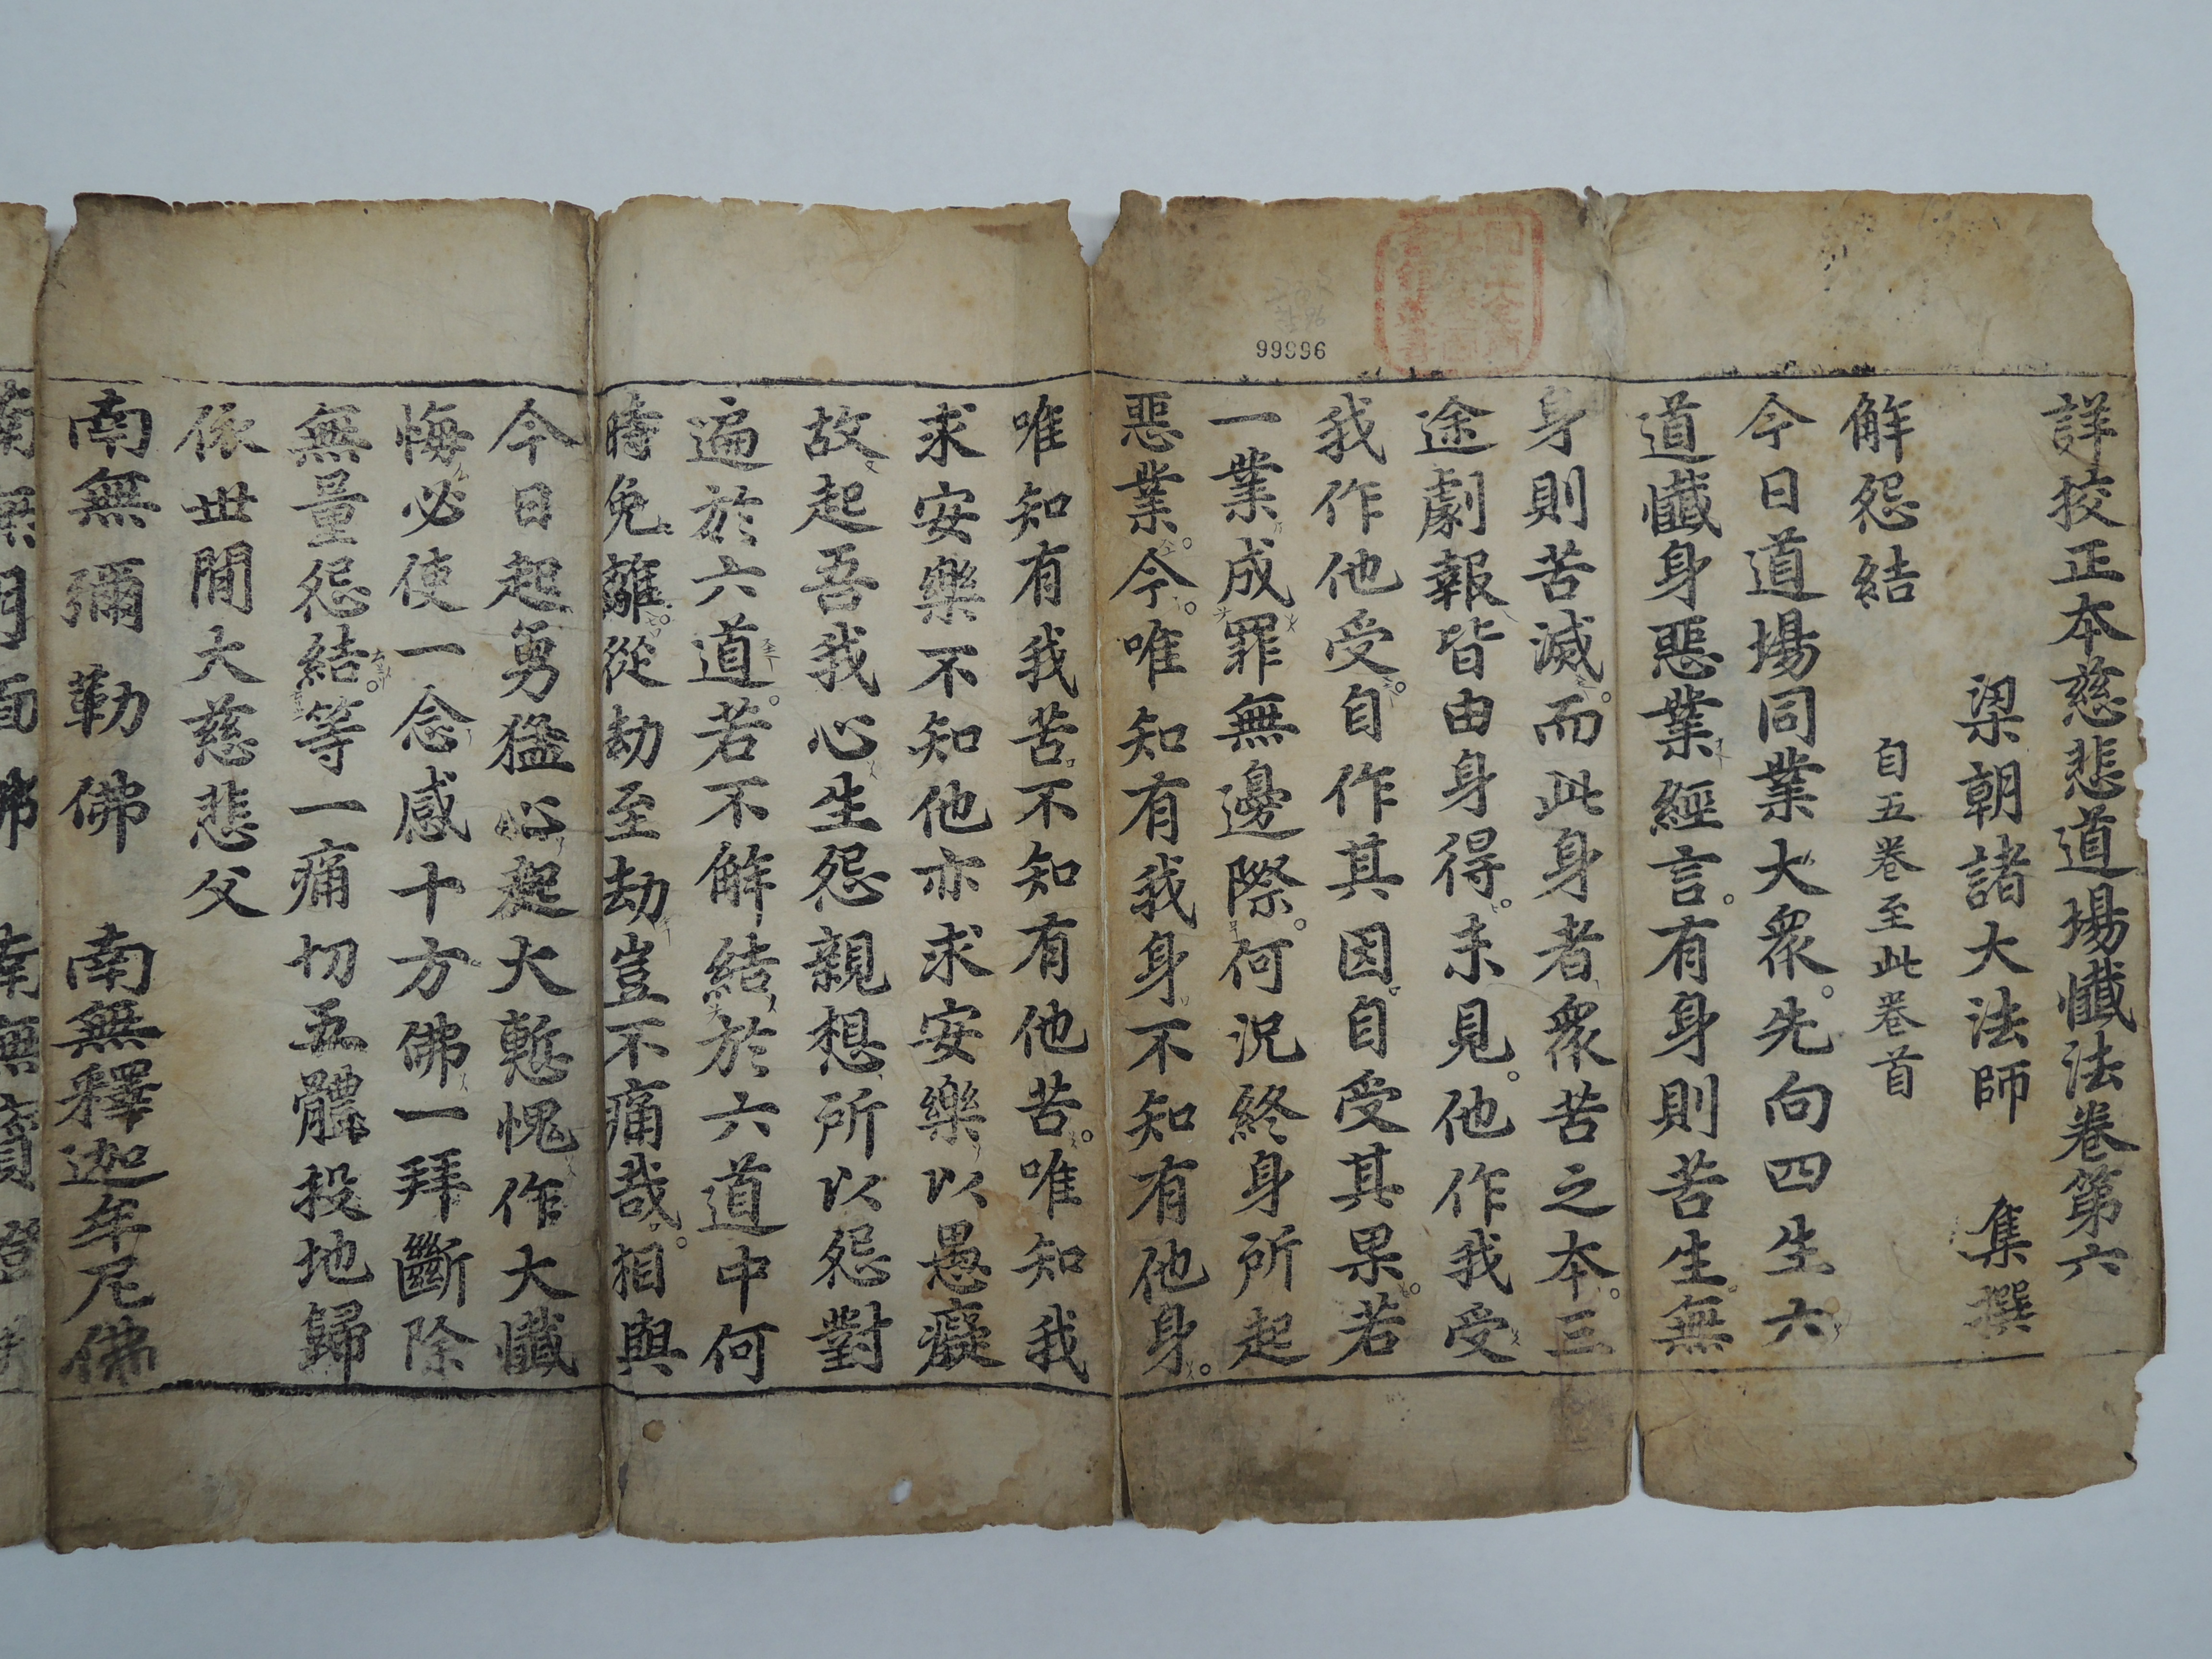 詳挍正本慈悲道場懺法卷第六
梁朝諸大法師 集撰
解怨結 自五卷至此卷首
今日道場同業大衆先向四生六
道懺身惡業經言有身則苦生無
身則苦滅而此身者衆苦之本三
途劇報皆由身得未見他作我受
我作他受自作其因自受其果若
一業成罪無邊際何況終身所起
惡業今唯知有我身不知有他身
唯知有我苦不知有他苦唯知我
求安樂不知他亦求安樂以愚癡
故起吾我心生怨親想所以怨對
遍於六道若不解結於六道中何
時免離從劫至劫豈不痛哉相與
今日起勇猛心起大慙愧作大懺
悔必使一念感十方佛一拜斷除
無量怨結等一痛切五體投地歸
依世間大慈悲父
南無彌勒佛 南無釋迦牟尼佛
99996